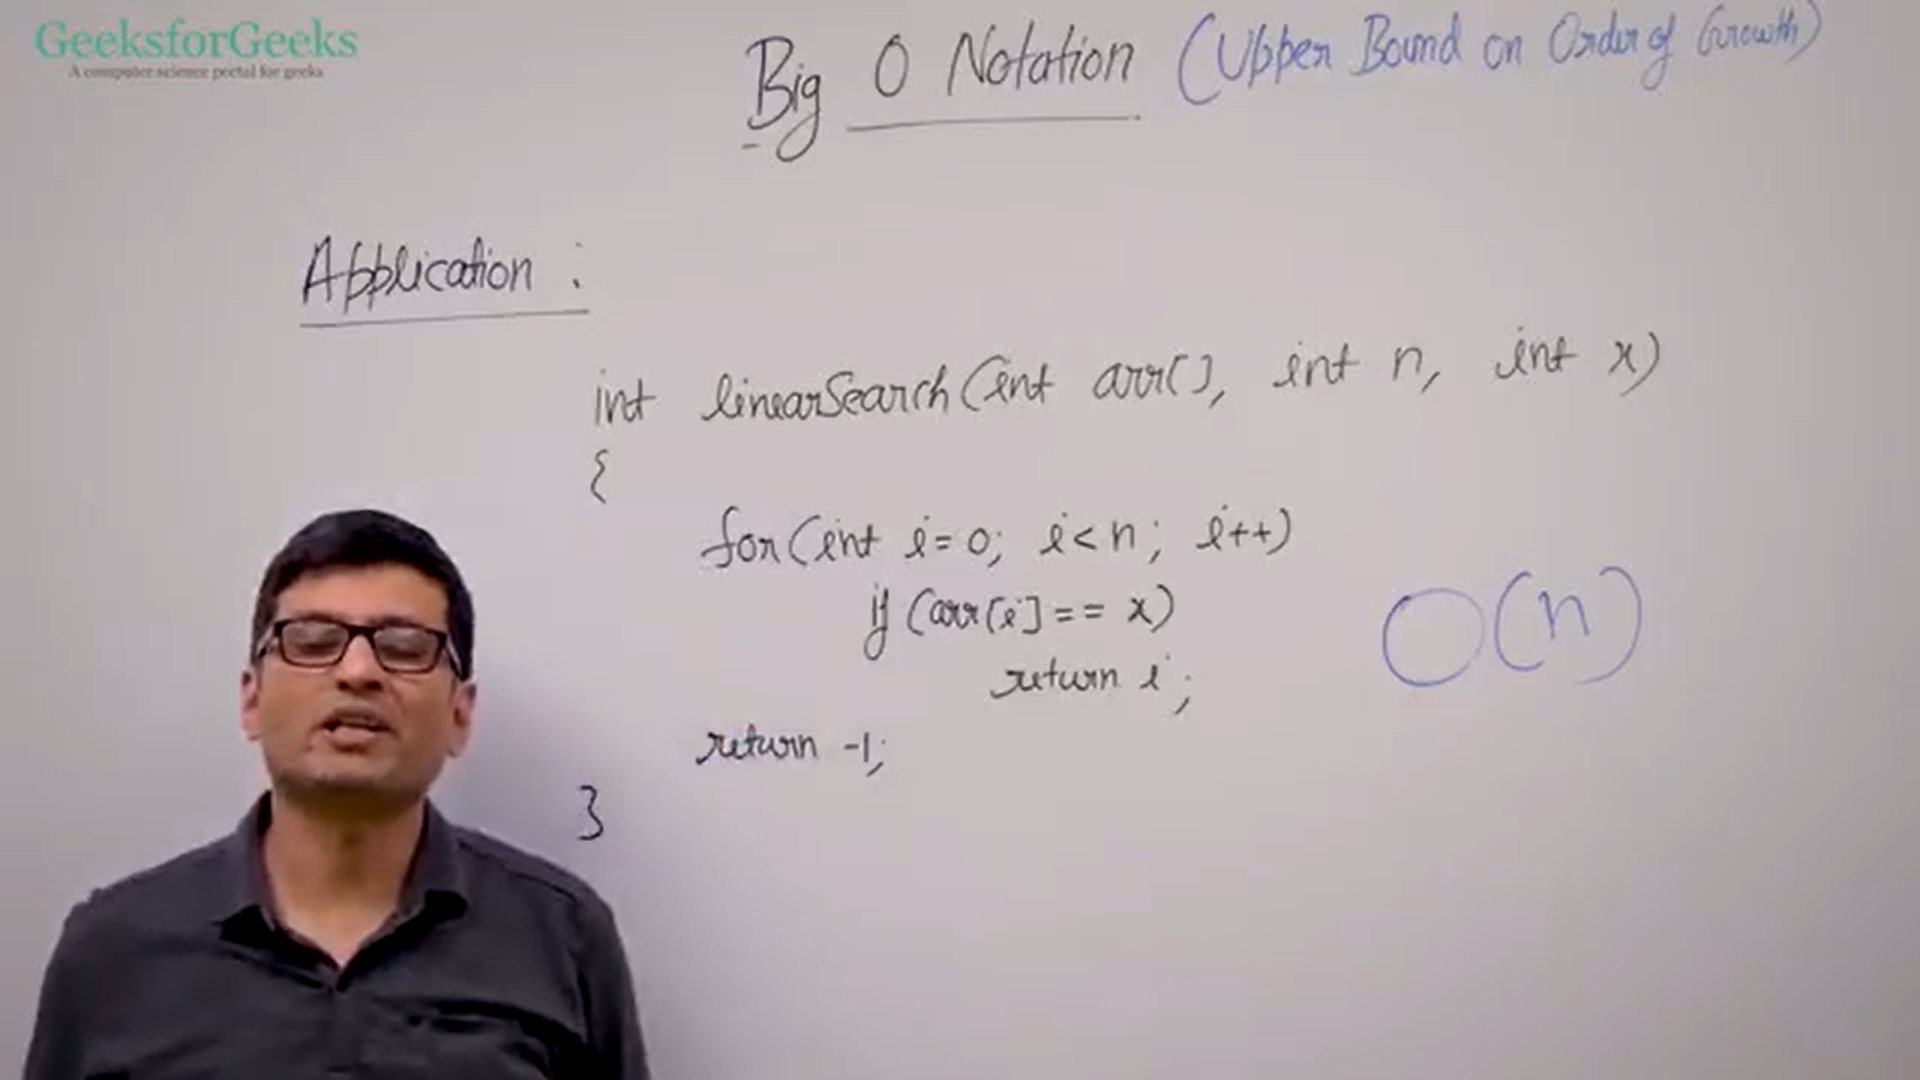 GeeksforGeeks
A computer science portal for geeks
Big O Notation (Upper Bound on Order of Growth)
Application :
int linearSearch(int arr[], int n, int x)
{
for(int i=0; i<n; i++)
if (arr[i] == x)
return i;
O(n)
return -1;
}